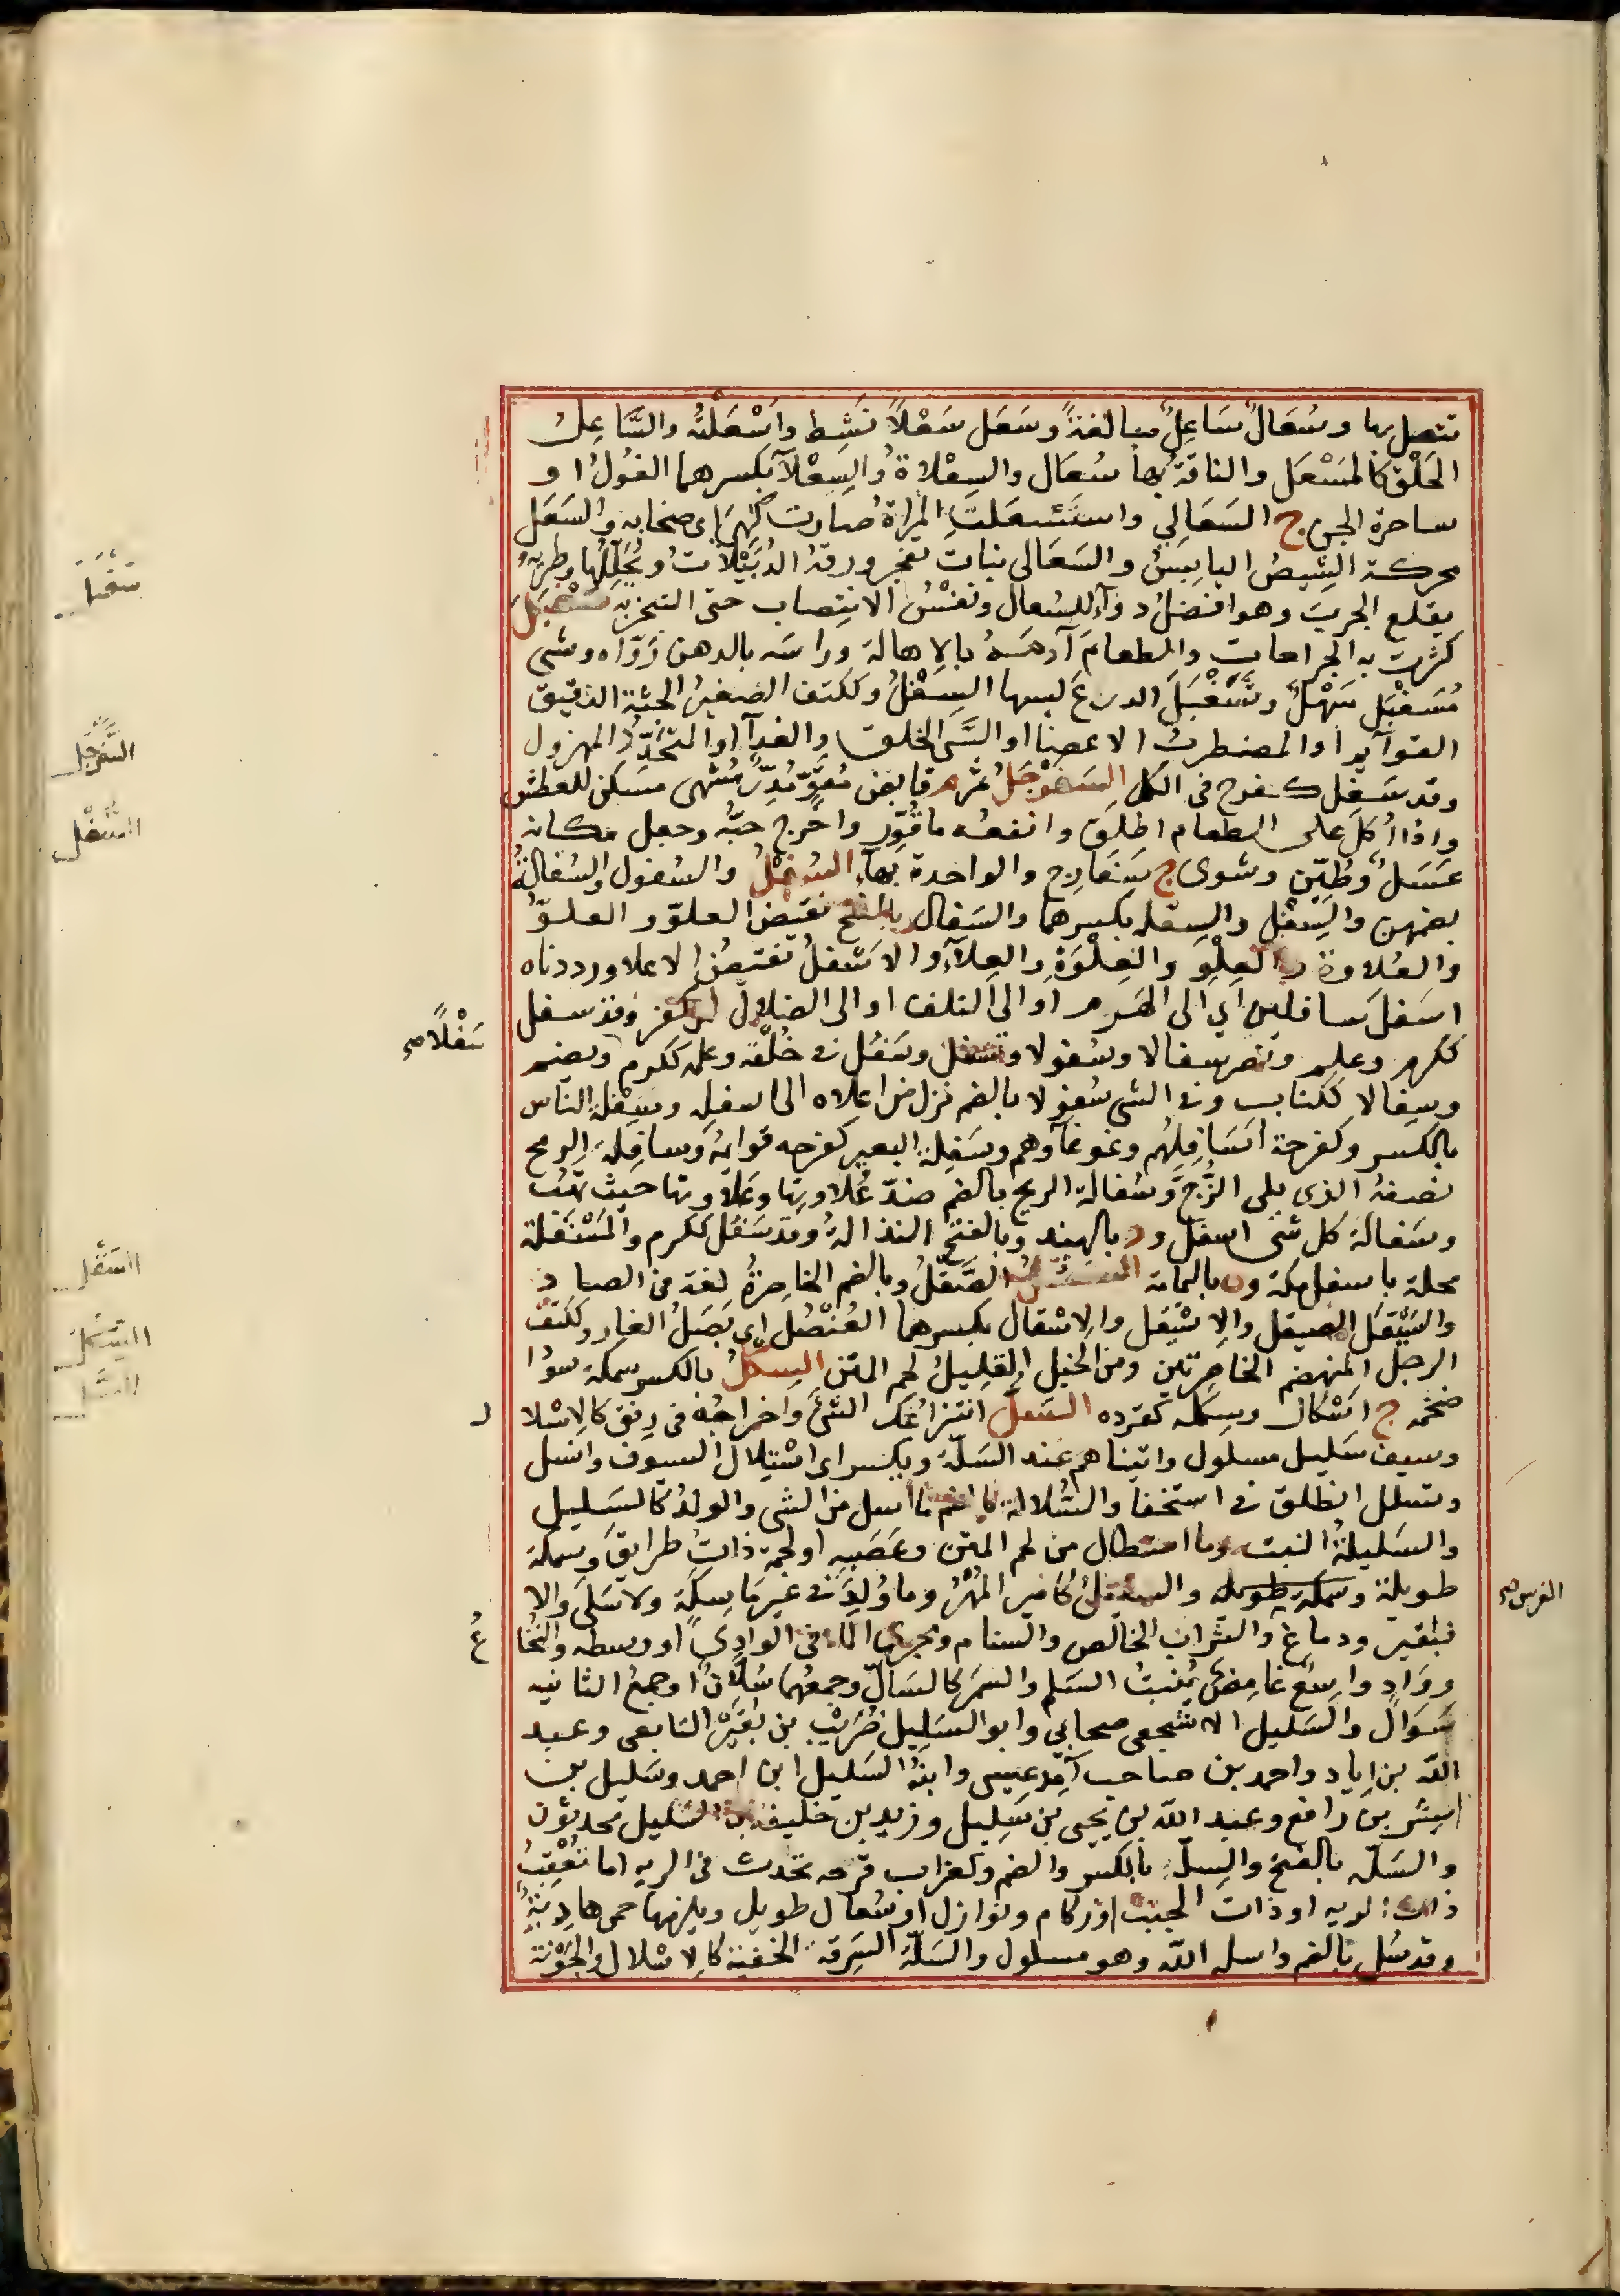 تتصل بها وسُعَالٌ سَاعِلٌ مبالغةً وسَعَل سَعْلاً نَشِط واَسْعَلتُه والسَّاعِلُ
الحَلْقُ كالمَسْعَل والناقةُ بها سُعَال والسِعْلاة والسِعْلآ بكسرهما الغُولُ او
ساحرة الجن ج السَعَالِي واستَسعَلَتِ المرأة صارت كهي اى صخابه والسَعَل
محركة الشِيصُ اليابِسُ والسَعَالى نبات تفجر ورقهُ الدُبَيْلَات ويُحَلِّلُها وطريُّه
يقلع الجرب وهو افضلُ دوآءٍ للسُعال ونفسُ الانتِصاب حتى التبخر به سَغْبَلَ
كثرت به الجراحات والطعامَ آدَمَهُ بالاهالة وراسَه بالدهن رَوَّاه وشى
مُسَغْبَل سَهْلٌ وتَسَغْبَلَ الدرعَ لبسها السَغِلُ وككتف الصغيرُ الجثة الدقيق
القوآيم او المضطربُ الاعضا او السَّىُ الخلق والغدآ او المتخدّدُ المهزول
وقد سَغِل كفرح فى الكل السَفَرْجَلُ ثمر م قابض مُقَوٍّ مُدِرّ مُشَهى مسكن للعطش
واذا اُكلَ على الطعام اطلَق وانفعُه ما قُوِّر واخرج حبُّه وجعل مكانه
عَسَلٌ وطُيّن وشوى ج سَفَارِج والواحدة بهآء السُفْلُ والسُفول والسُفَالةُ
بضمهن والسِفْل والسِفله بكسرهما والسَفَال بالفتح نقيض العلوّ والعلوّ
والعُلاوة والعِلْوِ والعِلْوَةِ والعلآءِ والاسْفلُ نقيضُ الاعلا ورددناه
اسفلَ سافلين اي الى الهَرم او الى التلف او الى الضلال لمن كفر وقد سفل
ككرم وعلم ونصر سفالا وسُفولا وتسفل وسَفُل فى خُلْقه وعلمه ككرم ويضم
وسِفالا ككتاب وفى الشى سُفولا بالضم نزل من اعلاه الى اسفله وسِفْلَةُ الناس
بالكسر وكفرحة اَسَافِلُهُم وغوغآوهم وسَفِلةُ البعير كفرحه قوائمهُ وسافِلة الرمح
نصفُهُ الذى يلى الزُّجّ وسُفالة الريح بالضم ضدّ عُلاوتها وعَلاوتها حيث تهُب
وسَفالةُ كل شى اسفله ود بالهند وبالفتح النذالةُ وقد سَفُل ككرم والمَسْفَلة
محلة باسفل مكة وة باليمامة السَقْل الصَقْلُ وبالضم الخاصِرةُ لغة فى الصاد
والسَيْقَل الصيقل والاسْقِيل والاسْقال بكسرهما العُنْصُل اى بَصَلُ الفار وككتف
الرجل المنهضم الخاصِرتين ومن الخيل القليلُ لحم المتن السِكل بالكسر سمكة سودا
ضخمه ج اسْكال وسِكَله كقرده السَلُّ انتزاعُك الشئَ واخراجُه فى رِفق كالاسْلا
وسيف سَليل مسلول واتيناهم عند السَلّة ويكسر اى اسْتِلال السيوف وانسل
وتسلل انطلق فى استخفا والسُلالة بالضم ما انسل من الشى والولدُ كالسَليل
والسَليلةُ البنت وما استطال من لحم المتن وعَصَبهِ او لحمة ذاتُ طرايقَ وسمكة
طويلة والسليلُ كامير المُهْرُ وما وُلِدَ فى غير مَاسِكَة ولا سَلَى والا
فبقير ودماغ والشراب الخالص والسنام ومجرى الماء فى الوادِى او وسطه والنخُا
ووَادٍ واسِعٌ غامِضٌ يُنبتُ السَلم والسَمُر كالسَالّ وجمعُهما سُلاّن او جمع الثانيه
سَوَالُّ والسَليل الاشجعى صحابي وابو السَلِيل ضُريب بن نُقير التابعى وعبيد
اللّه بن اياد واحمد بن صاحب آمِد عيسى وابنُه السَليل ابن احمد وسَليل بن
بشر بن رافع وعبد اللّه بن يحيى بن سَلِيل وزيد بن خليفة بن السَليل محدثون
والسَلّ بالفتح والسِلّ بالكسر والضم وكغراب قرحه تحدث فى الريه اما تُعْقِبُ
ذات الريه او ذات الجنب او زكام ونوازل او سُعال طويل ويلزمها حمى هادِيةٌ
وقد سُل بالضم واسله اللّه وهو مسلول والسَلّة السَرِقة الخفية كالاسْلال والجُوْنة
سَفْلًا صح
الفرس صح
ل
ع
السفرجل
السُفْل
السَقْل
السِكل
السَل